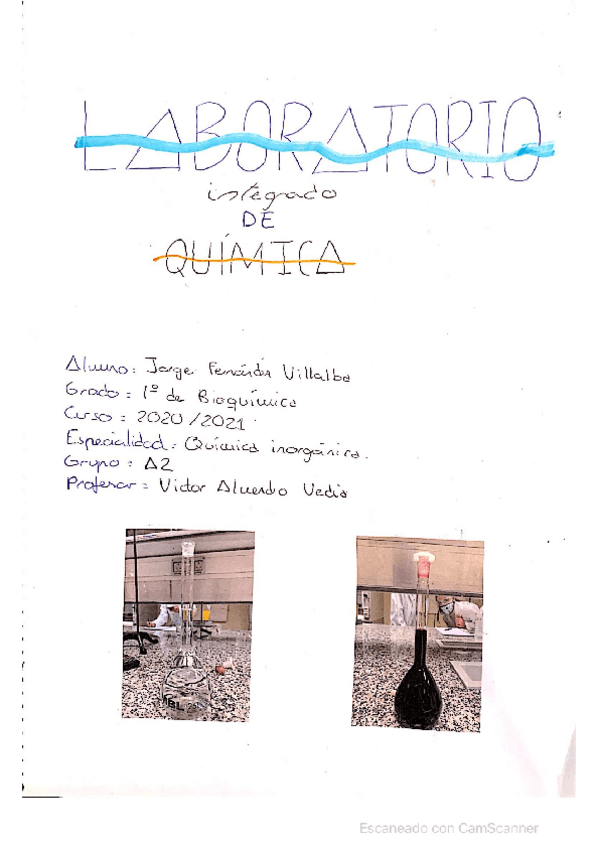 LABORATORIO
integrado
DE
QUÍMICA
Alumno: Jorge Fernández Villalba
Grado: 1º de Bioquímica
Curso: 2020/2021
Especialidad: Química inorgánica.
Grupo: A2
Profesor: Victor
BL
Escaneado con CamScanner